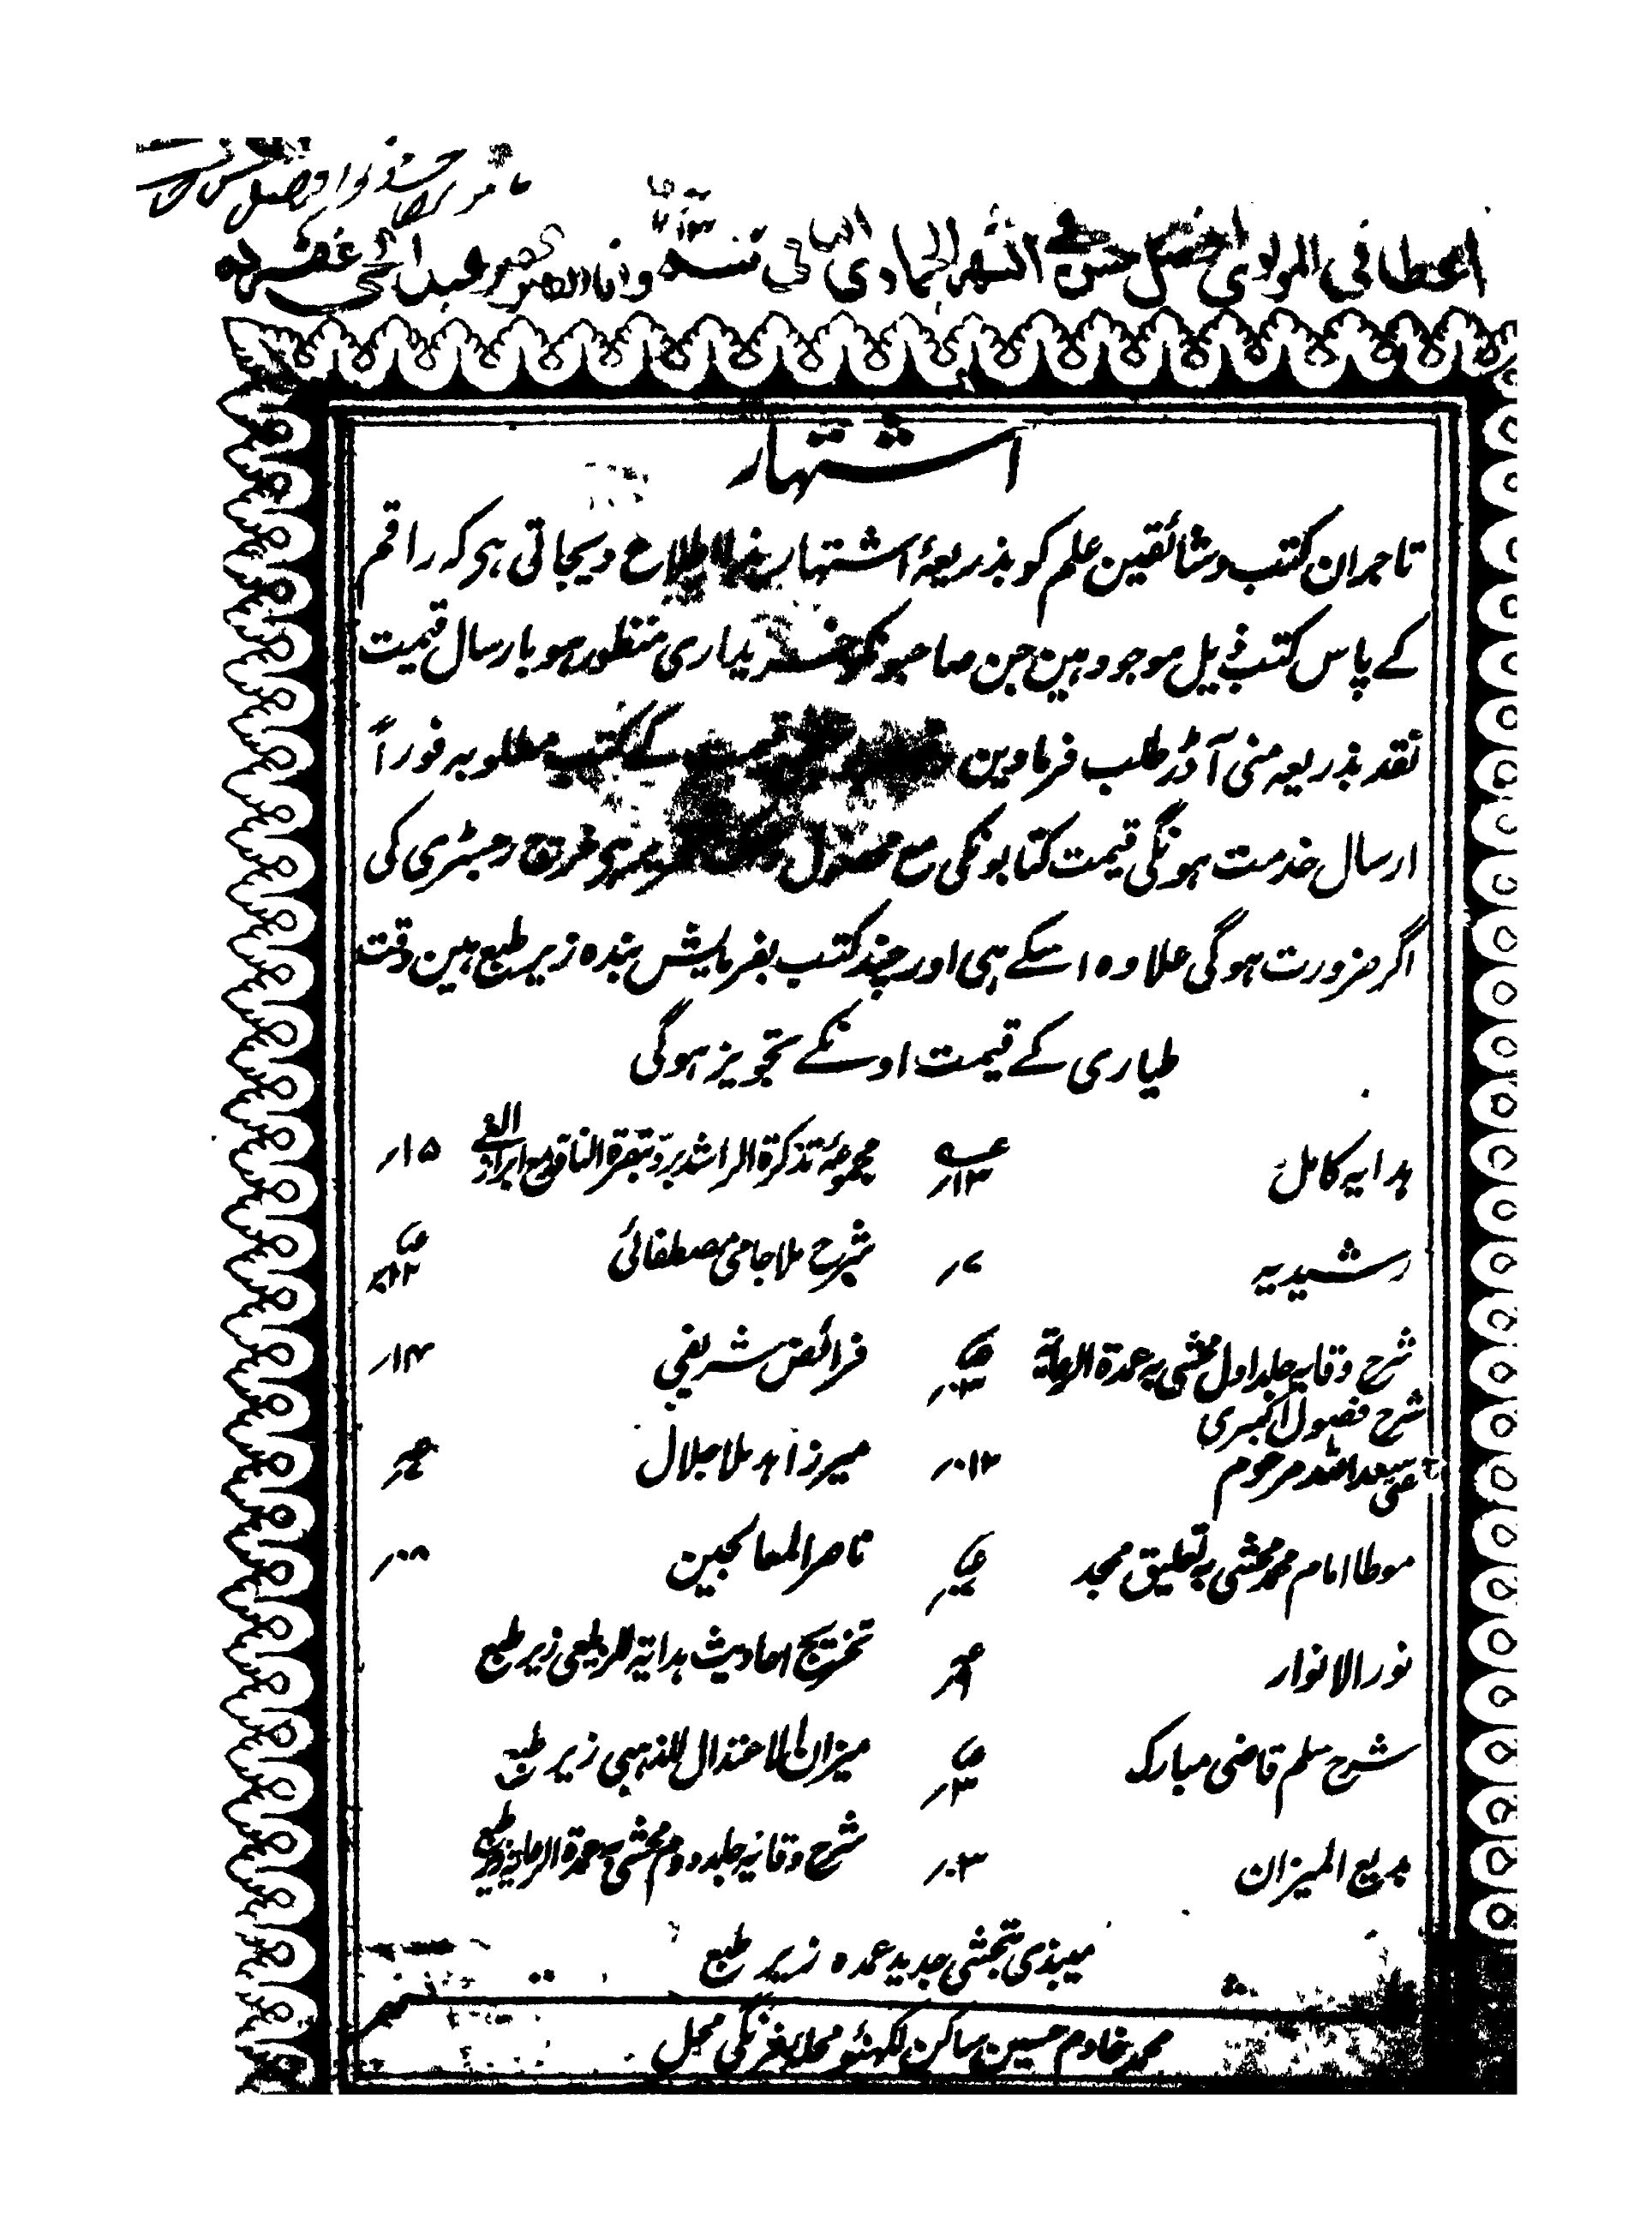 اعطانی المولوی افضل حسن فی الشهر الجمادی الثانی سنه وانا الفقیر عبد الحی غفر له
اشتہار
تاجران کتب وشائقین علم کو بذریعۂ اشتہار ہذا اطلاع دیجاتی ہی کہ راقم
کے پاس کتب ذیل موجود ہین جن صاحبونکو خریداری منظور ہو بارسال قیمت
نقد بذریعہ منی آڈر طلب فرماوین قیمت کے کتب مطلوبہ فوراً
ارسال خدمت ہونگی قیمت کتابونکی مع محصول ہی خرچ رجسٹری کی
اگر ضرورت ہوگی علاوہ اسکے بہی اور چند کتب بفرمایش بندہ زیر طبع ہین وقت
طیاری کے قیمت اونکے تجویز ہوگی
ہدایہ کامل ۱۳؍ مجموعۂ تذکرۃ الراشد برد تبصرۃ الناقد مع ابراز الغی ۱۵؍
رشیدیہ ۷؍ شرح ملا جامی مصطفائی
شرح وقایہ جلد اول محشی بہ عمدۃ الرعایۃ فرائض شریفی ۱۴؍
شرح فصول اکبری
سعد اللہ مرحوم ۱۲؍ میرزاہد ملا جلال
موطا امام محمد محشی بہ تعلیق ممجد ناصر المعالجین ۸؍
نور الانوار تخریج احادیث ہدایۃ للزیلعی زیر طبع
شرح سلم قاضی مبارک ۳؍ میزان الاعتدال للذہبی زیر طبع
بدیع المیزان ۳؍ شرح وقایہ جلد دوم محشی بہ عمدۃ الرعایۃ زیر طبع
میبذی بتحشی جدید عمدہ زیر طبع
محمد خادم حسین ساکن لکہنؤ محلہ فرنگی محل